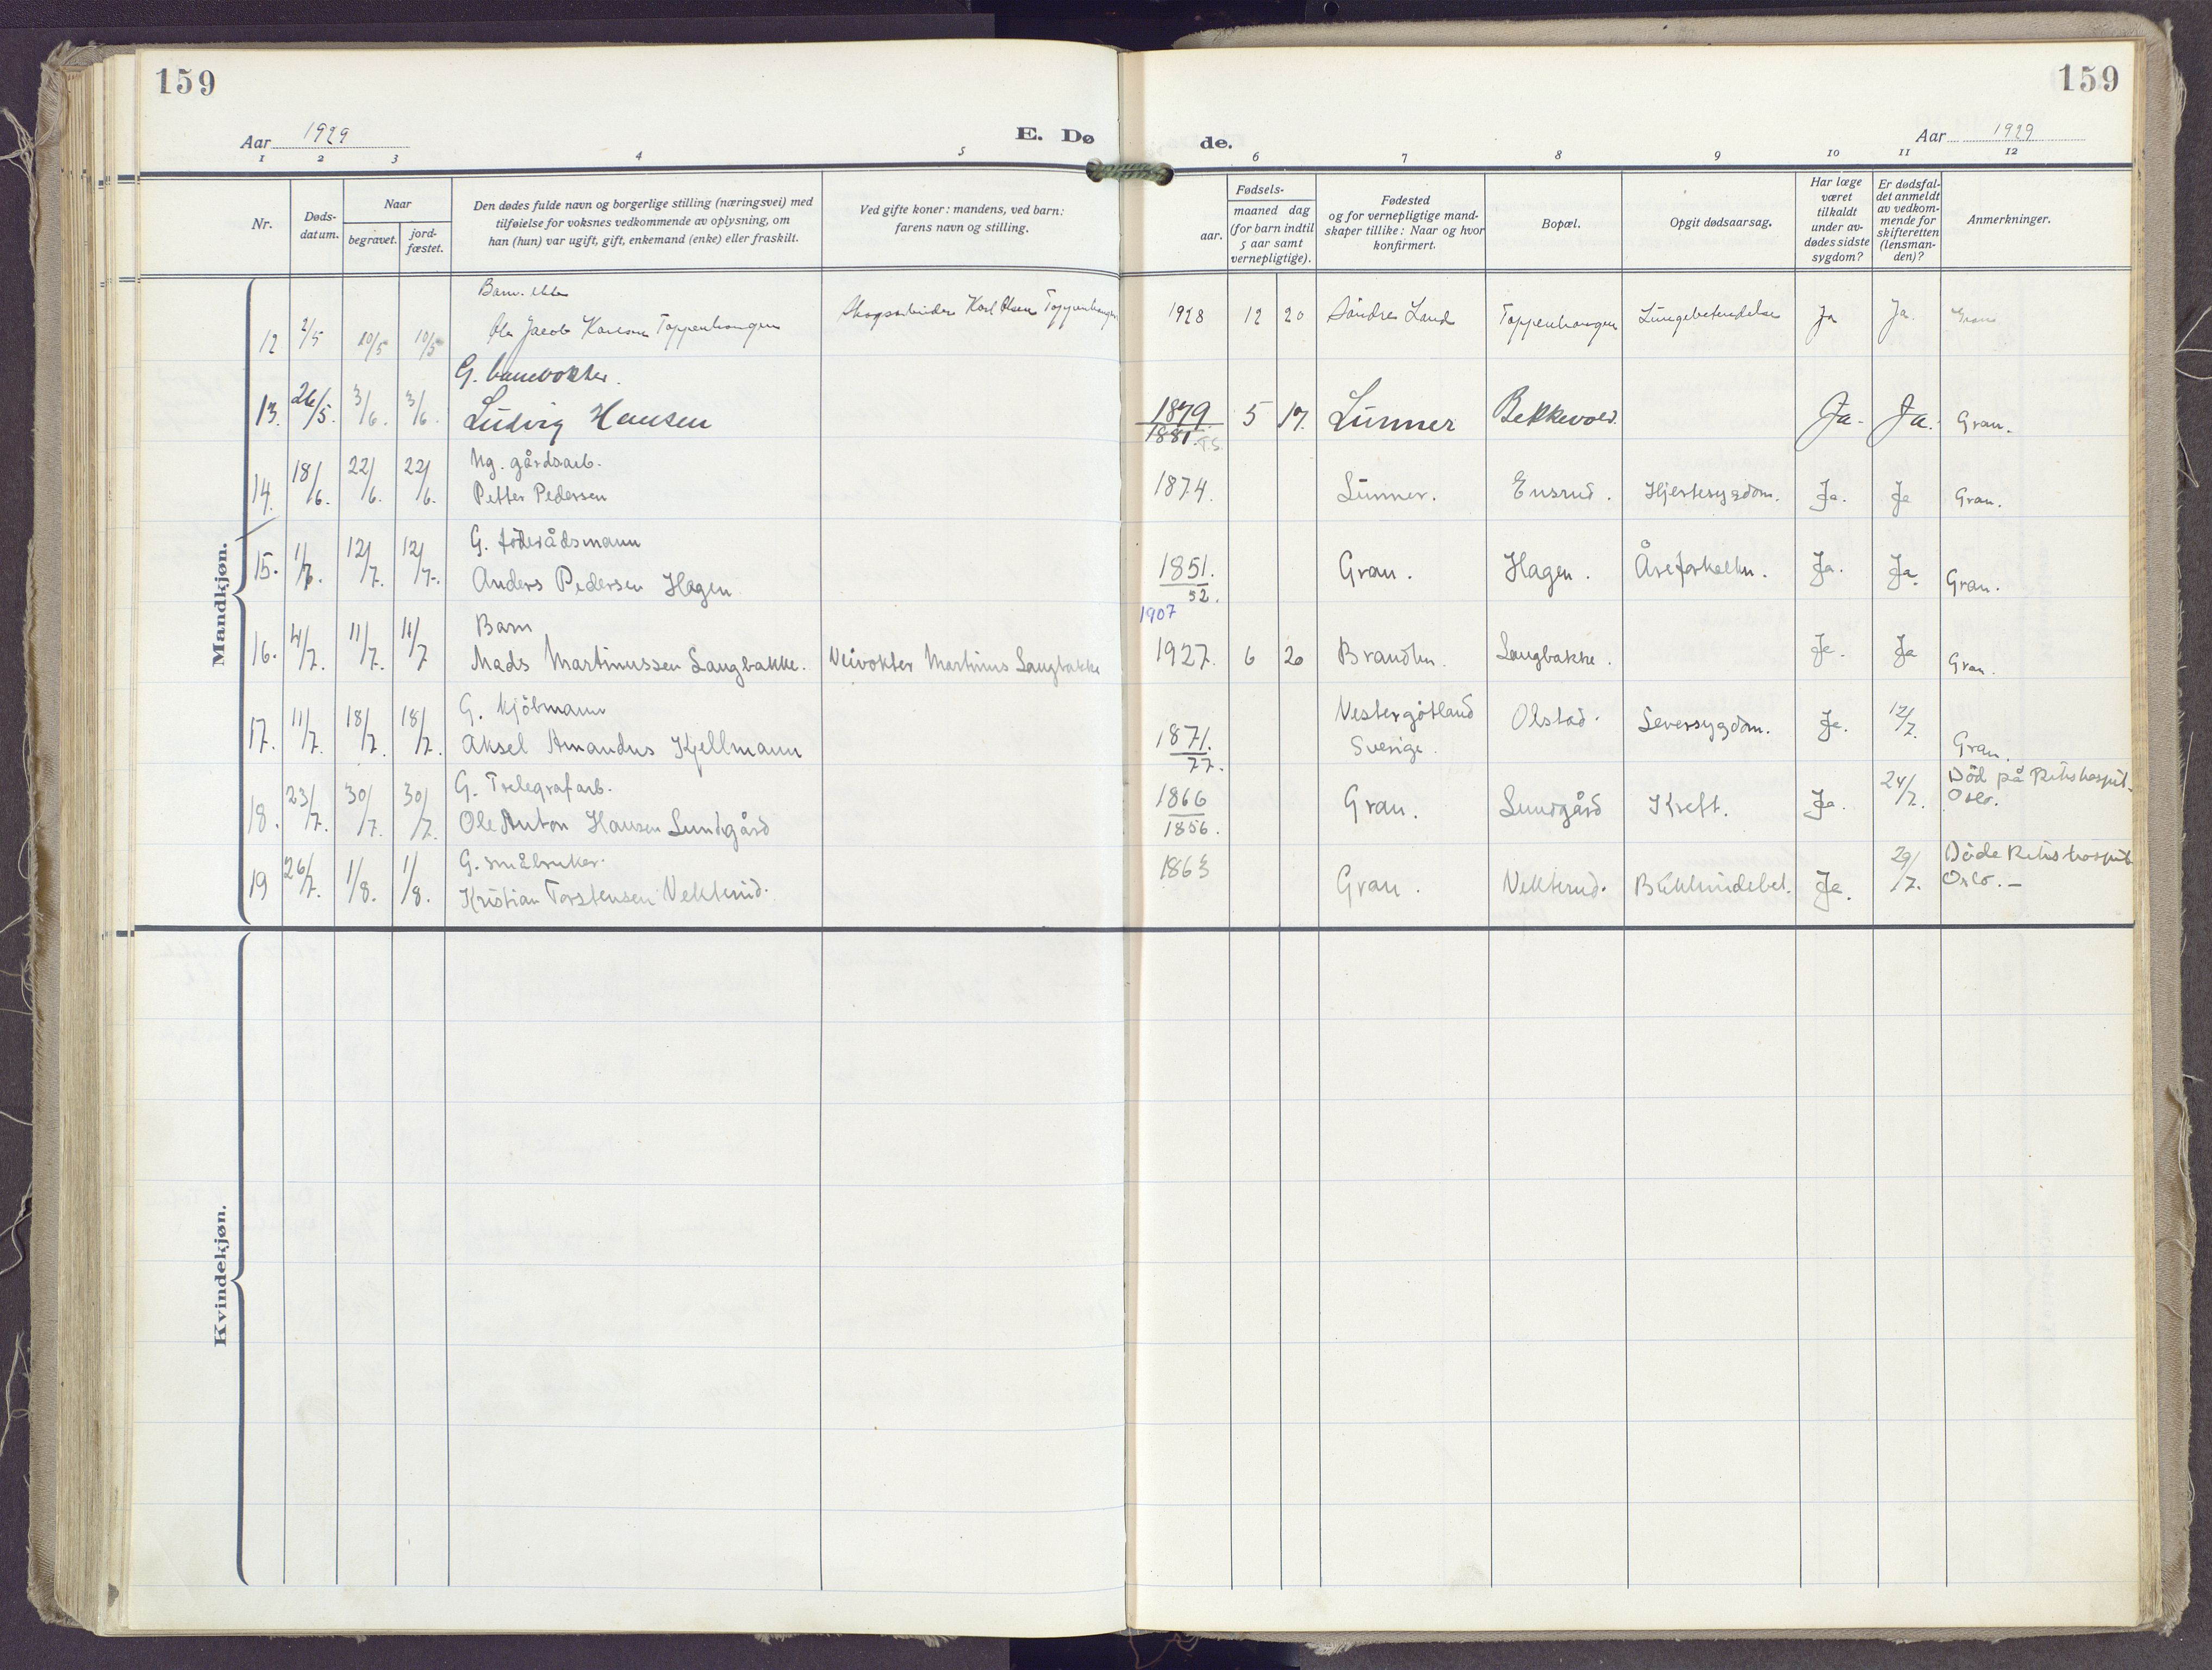 159
159
Aar 1929
E. Dø
de.
Aar 1929
1 2 3 4 5 6 7 8 9 10 11 12
Nr.
Døds-
datum.
Naar
begravet.
jord-
fæstet.
Den dødes fulde navn og borgerlige stilling (næringsvei) med
tilføielse for voksnes vedkommende av oplysning, om
han (hun) var ugift, gift, enkemand (enke) eller fraskilt.
Ved gifte koner: mandens, ved barn:
farens navn og stilling.
Fødsels-
aar.
maaned dag
(for barn indtil
5 aar samt
vernepligtige).
Fødested
og for vernepligtige mand-
skaper tillike: Naar og hvor
konfirmert.
Bopæl.
Opgit dødsaarsag.
Har læge
været
tilkaldt
under av-
dødes sidste
sygdom?
Er dødsfal-
det anmeldt
av vedkom-
mende for
skifteretten
(lensman-
den)?
Anmerkninger.
Mandkjøn.
Barn
12 2/5 10/5 10/5 Ole Jacob Karlsen Toppenhaugen Skogsarbeider Karl Olsen Toppenhaugen 1928 12 20 Søndre Land Toppenhaugen Lungebetendelse Ja Ja. Gran
G. banevokter.
13. 26/5. 3/6. 3/6. Ludvig Hansen 1879 5 17. Lunner Bekkevold. Ja. Ja. Gran.
1881. T.S.
Ug. gårdsarb.
14. 18/6. 22/6. 22/6. Petter Pedersen 1874. Lunner. Ensrud. Hjertesygdom. Ja. Ja Gran.
G. föderådsmann
15. 1/7. 12/7. 12/7. Anders Pedersen Hagen 1851. Gran. Hagen. Åreforkalkn. Ja. Ja. Gran.
52.
1907
Barn
16. 4/7. 11/7. 11/7 Mads Martinussen Langbakke. Veivokter Martinus Langbakke 1927. 6 20 Brandbu. Langbakke. Ja. Ja Gran.
G. kjöbmann
17. 11/7. 18/7. 18/7. Aksel Amandus Kjellmann 1871. Vestergötland Olstad. Leversygdom. Ja. 12/7. Gran.
77. Sverige.
G. Telegrafarb.
18. 23/7. 30/7. 30/7. Ole Anton Hansen Lundgård 1866 Gran. Lundgård Kreft. Ja. 24/7. Död på Rikshospit.
1856. Oslo.
G. småbruker.
19 26/7. 1/8. 1/8. Kristian Torstensen Vekterud. 1863 Gran. Vekterud. Bukhindebet. Ja. 29/7. Döde Rikshospit
Oslo. –
Kvindekjøn.